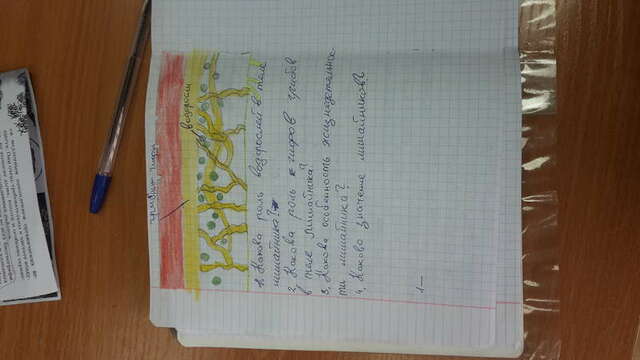 грибные гифы
водоросли
1. Какова роль водорослей в теле
лишайника?
2. Какова роль гифов грибов
в теле лишайника?
3. Какова особенность жизнедеятельнос-
ти лишайника?
4. Каково значение лишайников?
1—